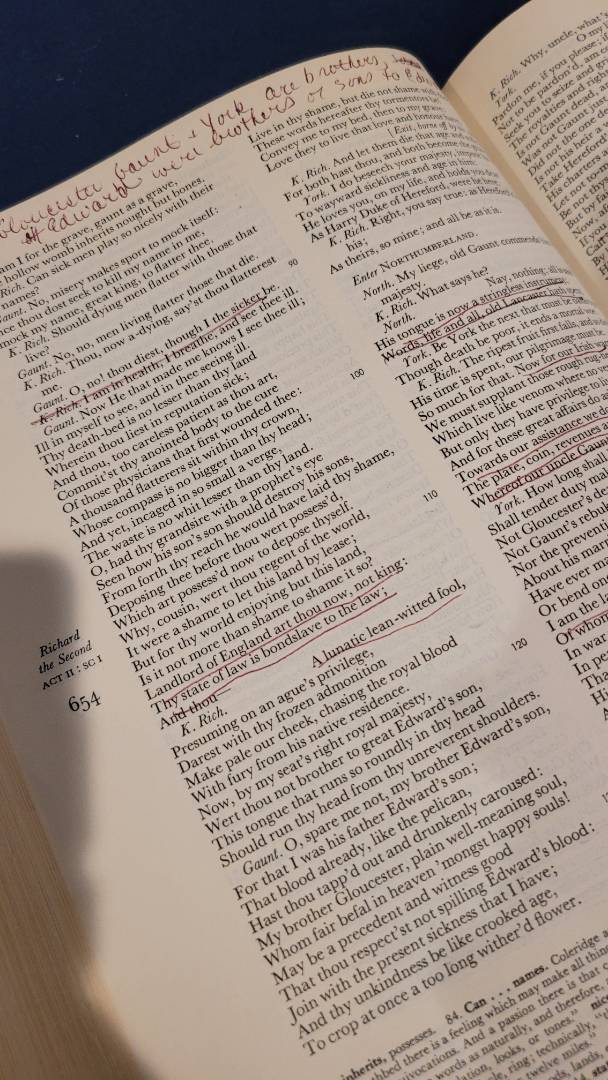 Gloucester, Gaunt & York are brothers,
all Edward were brothers or sons to Ed
am I for the grave, gaunt as a grave,
hollow womb inherits nought but bones.
Rich. Can sick men play so nicely with their
names?
Gaunt. No, misery makes sport to mock itself:
nce thou dost seek to kill my name in me,
mock my name, great king, to flatter thee.
K. Rich. Should dying men flatter with those that
live?
Gaunt. No, no, men living flatter those that die.
K. Rich. Thou, now a-dying, say'st thou flatterest
me.
90
Gaunt. O, no! thou diest, though I the sicker be.
K. Rich. I am in health, I breathe, and see thee ill.
Gaunt. Now He that made me knows I see thee ill;
Ill in myself to see, and in thee seeing ill.
Thy death-bed is no lesser than thy land
Wherein thou liest in reputation sick;
And thou, too careless patient as thou art,
Commit'st thy anointed body to the cure
Of those physicians that first wounded thee:
A thousand flatterers sit within thy crown,
100
Whose compass is no bigger than thy head;
And yet, incaged in so small a verge,
The waste is no whit lesser than thy land.
O, had thy grandsire with a prophet's eye
Seen how his son's son should destroy his sons,
From forth thy reach he would have laid thy shame,
Deposing thee before thou wert possess'd,
Which art possess'd now to depose thyself.
Why, cousin, wert thou regent of the world,
It were a shame to let this land by lease;
110
But for thy world enjoying but this land,
Is it not more than shame to shame it so?
Landlord of England art thou now, not king:
Thy state of law is bondslave to the law;
And thou—
K. Rich. A lunatic lean-witted fool,
Presuming on an ague's privilege,
Darest with thy frozen admonition
Make pale our cheek, chasing the royal blood
With fury from his native residence.
120
Now, by my seat's right royal majesty,
Wert thou not brother to great Edward's son,
This tongue that runs so roundly in thy head
Should run thy head from thy unreverent shoulders.
Gaunt. O, spare me not, my brother Edward's son,
For that I was his father Edward's son;
That blood already, like the pelican,
Hast thou tapp'd out and drunkenly caroused:
My brother Gloucester, plain well-meaning soul,
Whom fair befal in heaven 'mongst happy souls!
May be a precedent and witness good
That thou respect'st not spilling Edward's blood:
Join with the present sickness that I have;
And thy unkindness be like crooked age,
To crop at once a too long wither'd flower.
Richard
the Second
ACT II : SC I
654
inherits, possesses. 84. Can . . . names. Coleridge
there is a feeling which may make all
vocations. And a passion there is that
words as naturally, and therefore,
tation, looks, or tones." nic
ring: technically,
twelve miles
Live in thy shame, but die not shame with
These words hereafter thy tormentors be
Convey me to my bed, then to my grave
Love they to live that love and honour
[Exit, borne off by
K. Rich. And let them die that age and
For both hast thou, and both become the
York. I do beseech your majesty, impute
To wayward sickliness and age in him:
He loves you, on my life, and holds you
As Harry Duke of Hereford, were he here
K. Rich. Right, you say true: as Hereford's
his;
As theirs, so mine; and all be as it is.
Enter NORTHUMBERLAND.
North. My liege, old Gaunt commends
majesty.
K. Rich. What says he?
North. Nay, nothing; all
His tongue is now a stringless instrument
Words, life and all, old Lancaster hath
York. Be York the next that must be
Though death be poor, it ends a mortal
K. Rich. The ripest fruit first falls, and
His time is spent, our pilgrimage must be
So much for that. Now for our Irish
We must supplant those rough rug
Which live like venom where no
But only they have privilege to
And for these great affairs do
Towards our assistance we
The plate, coin, revenues
Whereof our uncle Gaunt
York. How long shall
Shall tender duty
Not Gloucester's
Not Gaunt's
Nor the
About his
Have ever
Or bend
I am the
Of whom
In war
In
K. Rich. Why, uncle, what's
York. O my
Pardon me, if you please; if
Not to be pardon'd, am
Seek you to seize and
The royalties and rights
Is not Gaunt dead,
Was not Gaunt just,
Did not the one
Is not his heir
Take Hereford's
His charters
Let not
Be not